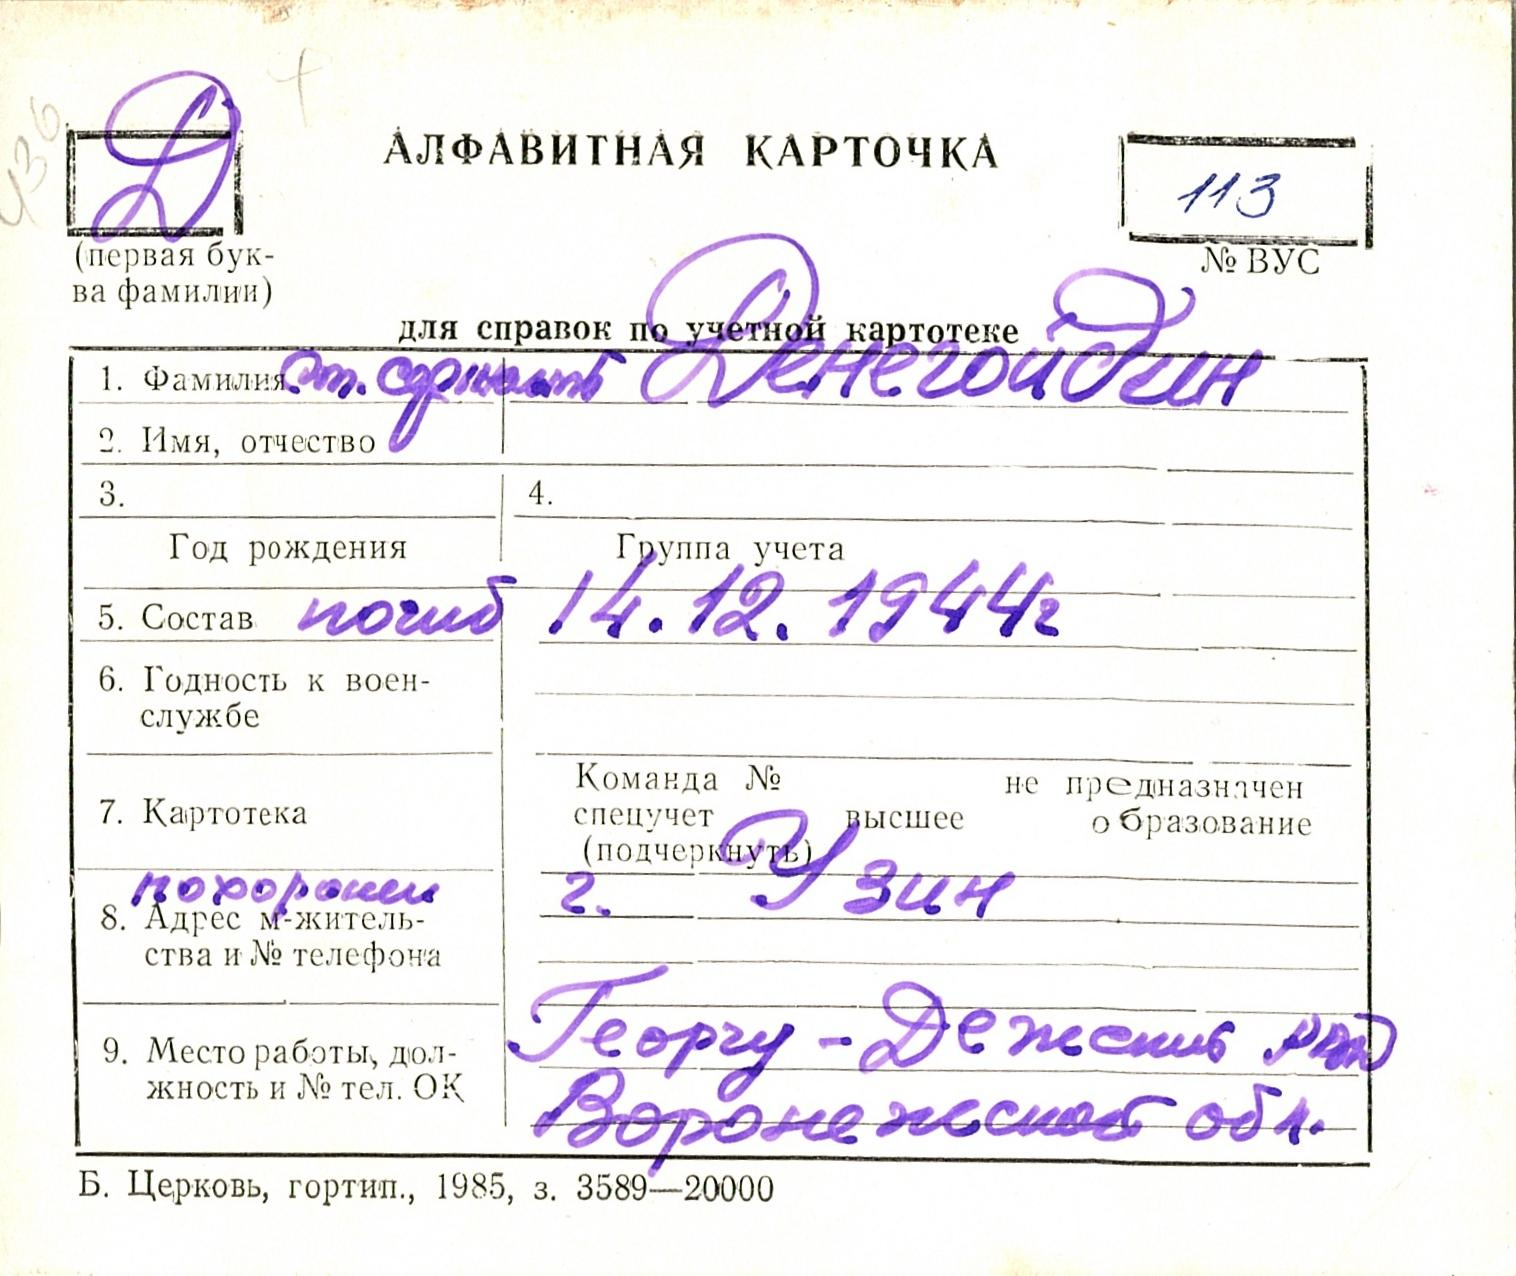 436
Д
АЛФАВИТНАЯ КАРТОЧКА
113
(первая бук-
ва фамилии)
№ ВУС
для справок по учетной картотеке
1. Фамилия ст. сержант Денегойдин
2. Имя, отчество
3. 4.
Год рождения Группа учета
5. Состав погиб 14.12.1944г
6. Годность к воен-
службе
7. Картотека
Команда № не предназначен
спецучет высшее образование
(подчеркнуть)
похоронен г. Узин
8. Адрес м-житель-
ства и № телефона
Георгу-Дежский
9. Место работы, дол-
жность и № тел. ОК
Воронежской обл.
Б. Церковь, гортип., 1985, з. 3589—20000